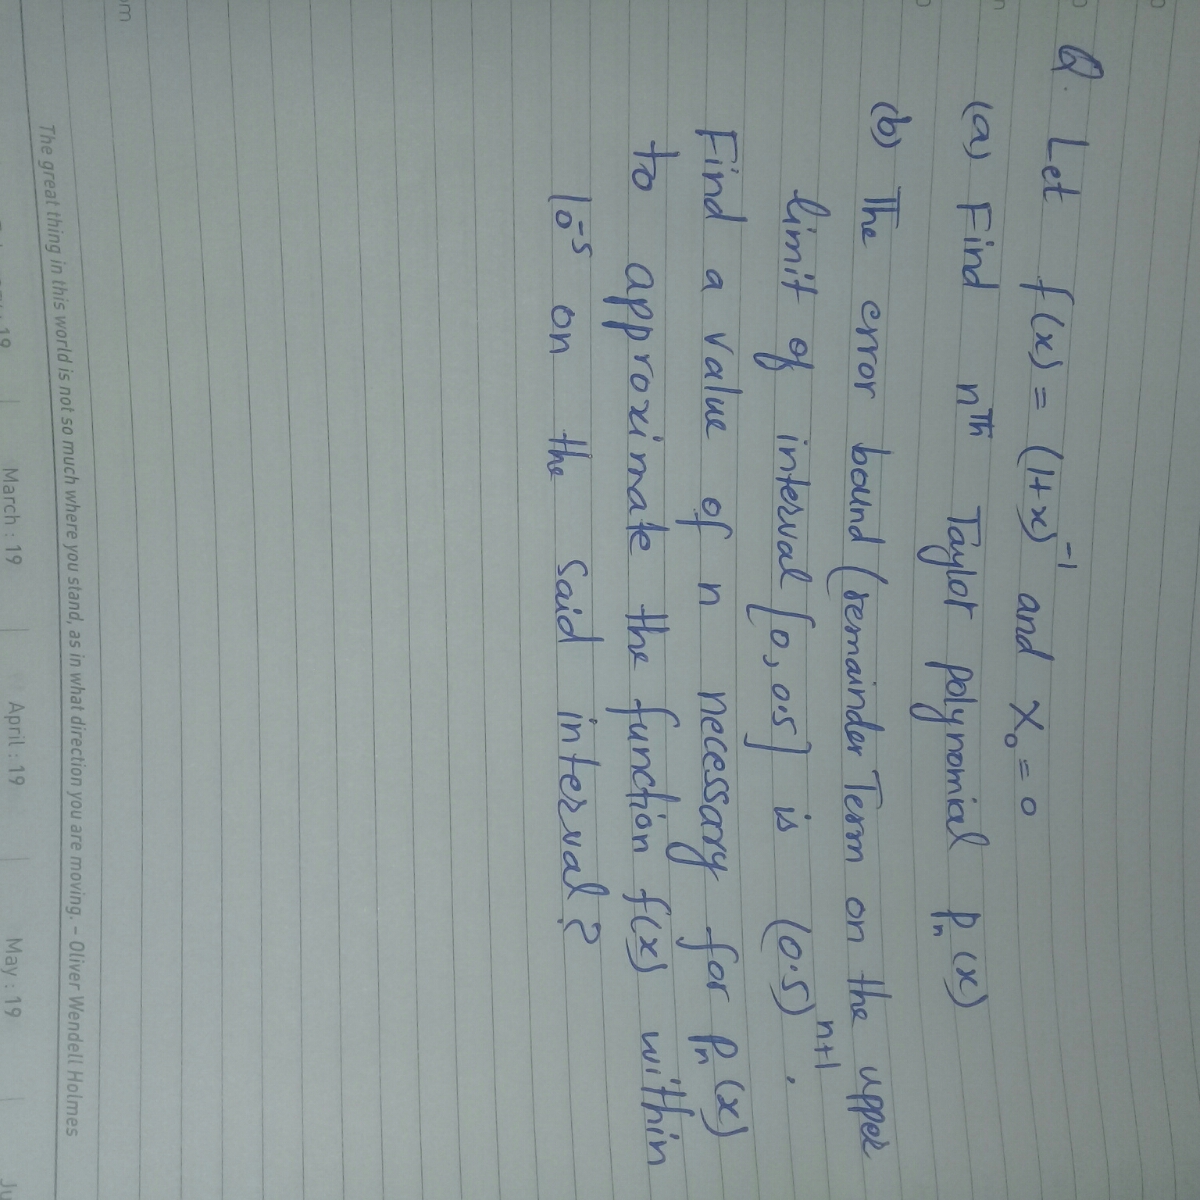 Q. Let f(x) = (1+x)⁻¹ and x₀ = 0
(a) Find nᵀʰ Taylor polynomial Pₙ(x)
(b) The error bound (remainder Term on the upper
limit of interval [0, 0.5] is (0.5)ⁿ⁺¹.
Find a value of n necessary for Pₙ(x)
to approximate the function f(x) within
10⁻⁵ on the said interval?
The great thing in this world is not so much where you stand, as in what direction you are moving. – Oliver Wendell Holmes
March : 19 | April : 19 | May : 19 |